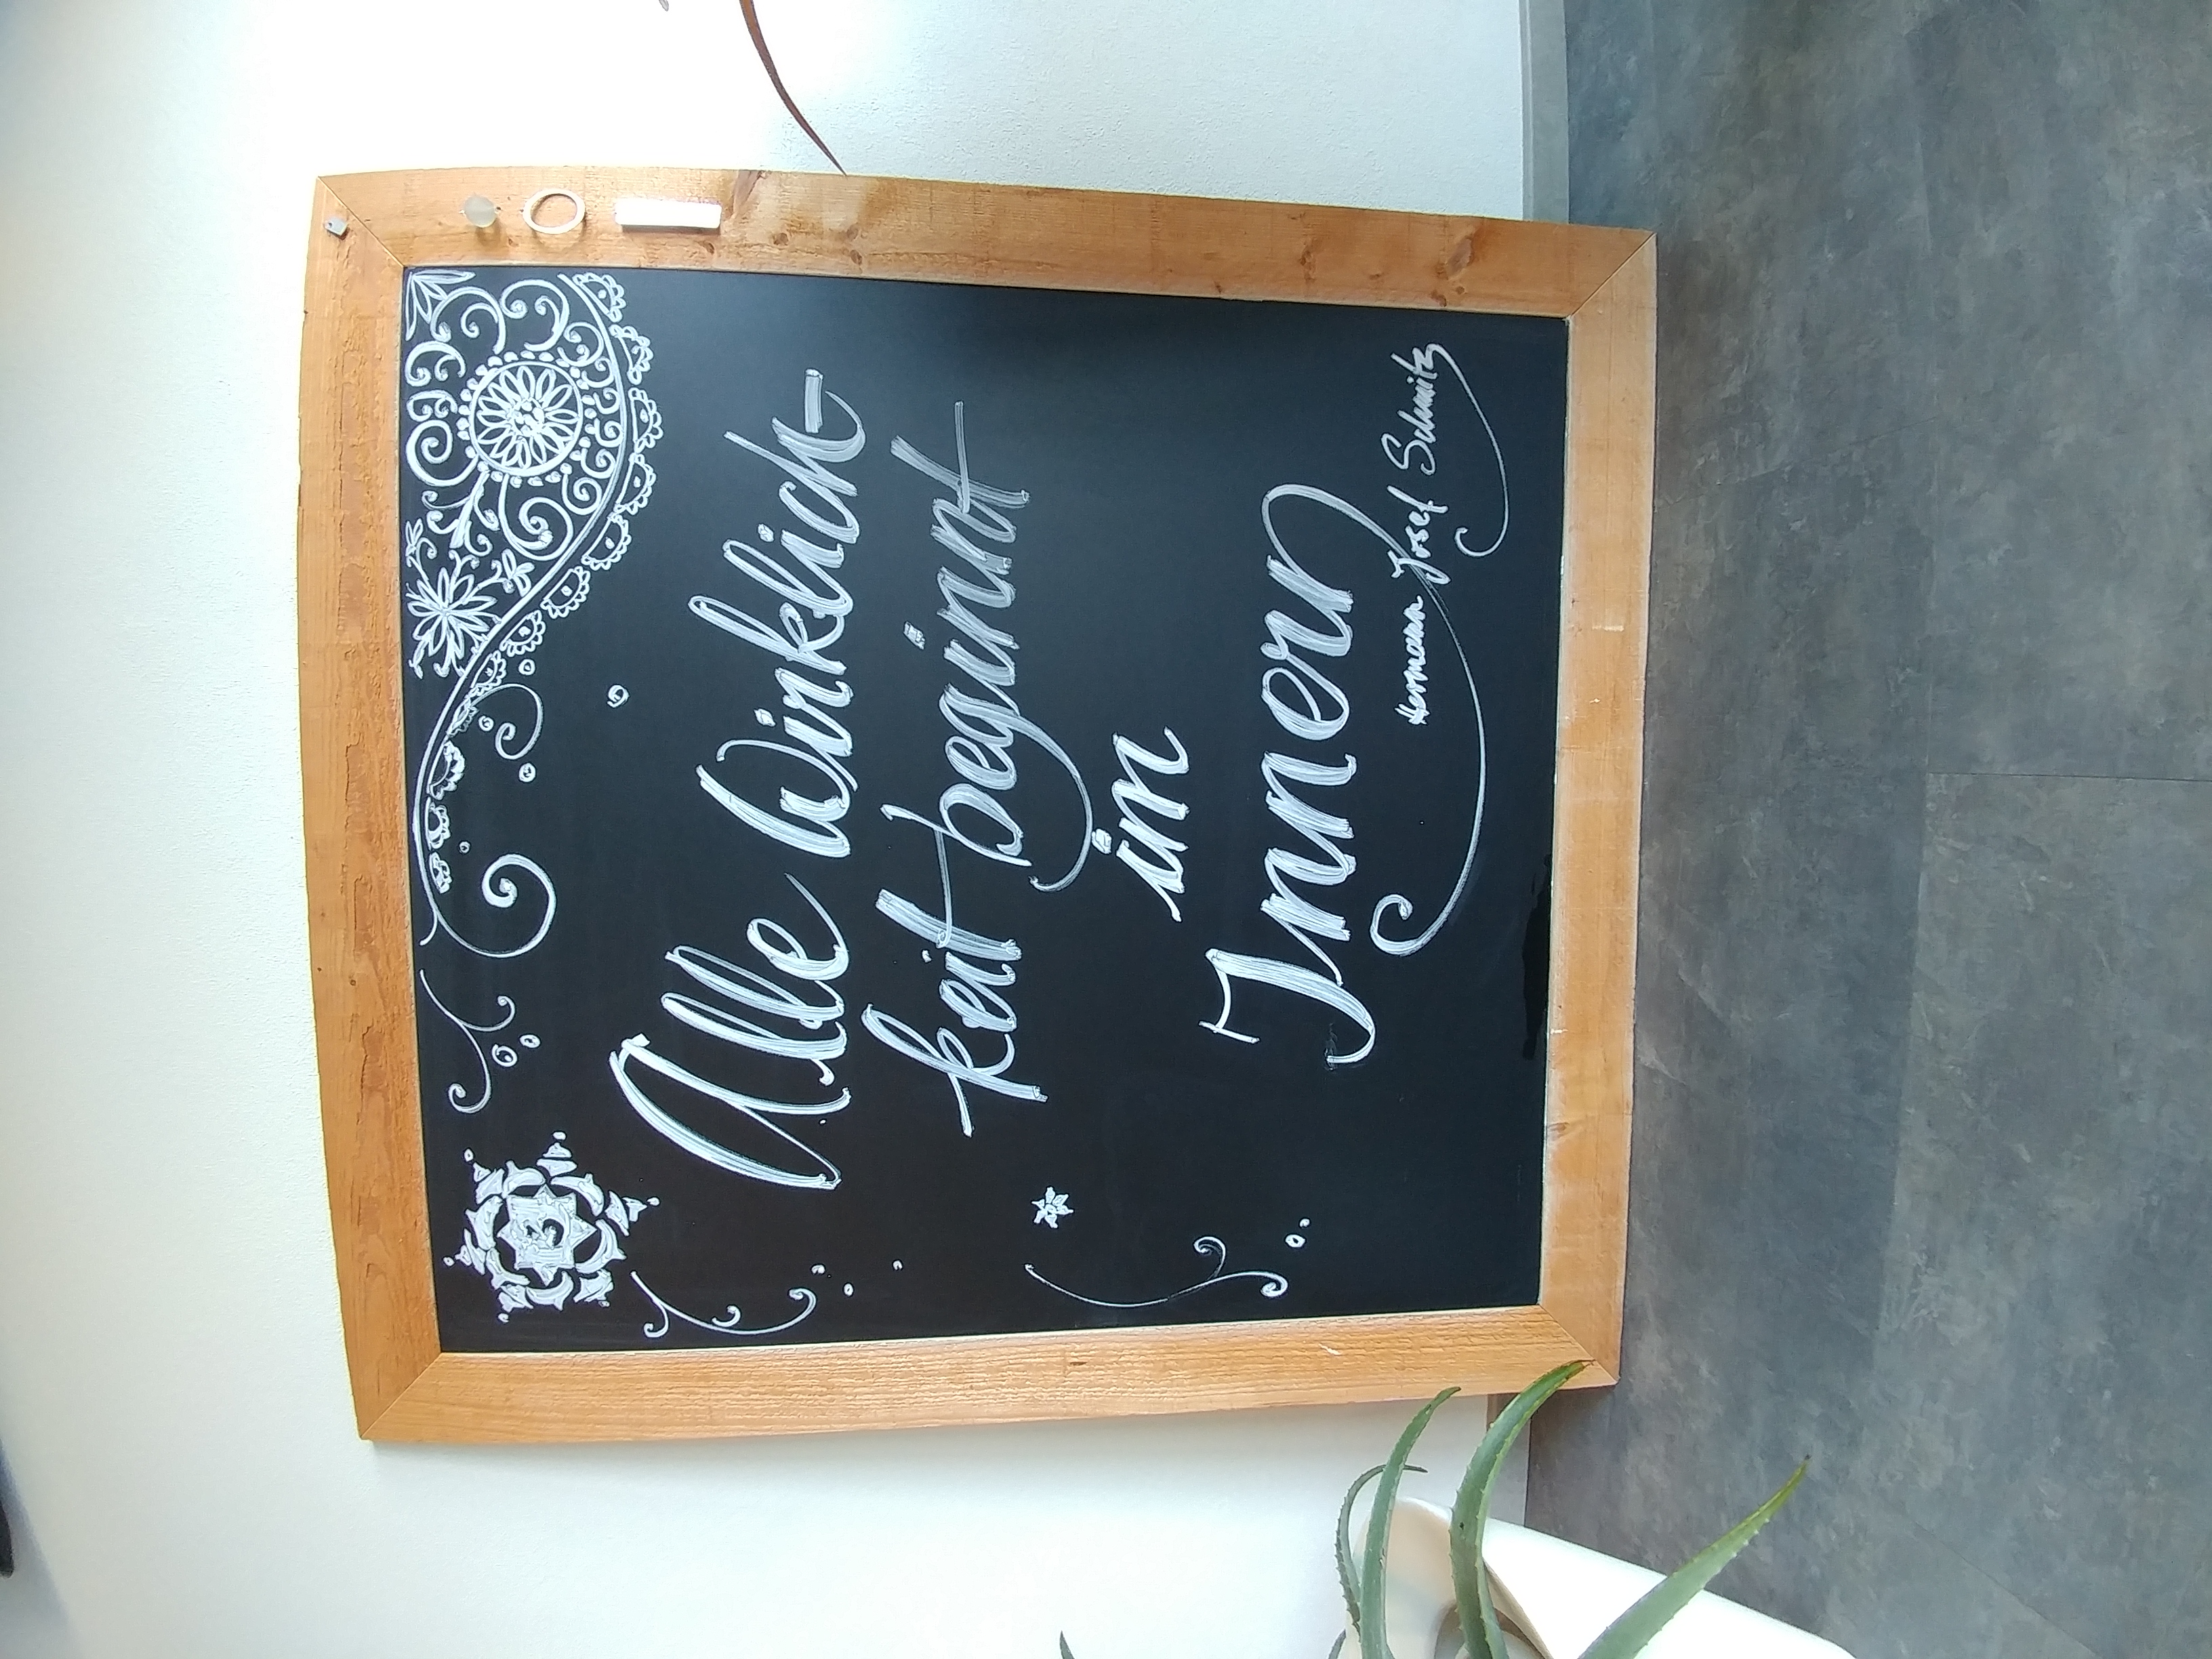 Alle Wirklich-
keit beginnt
im
Innern
Hermann Josef Schmitz